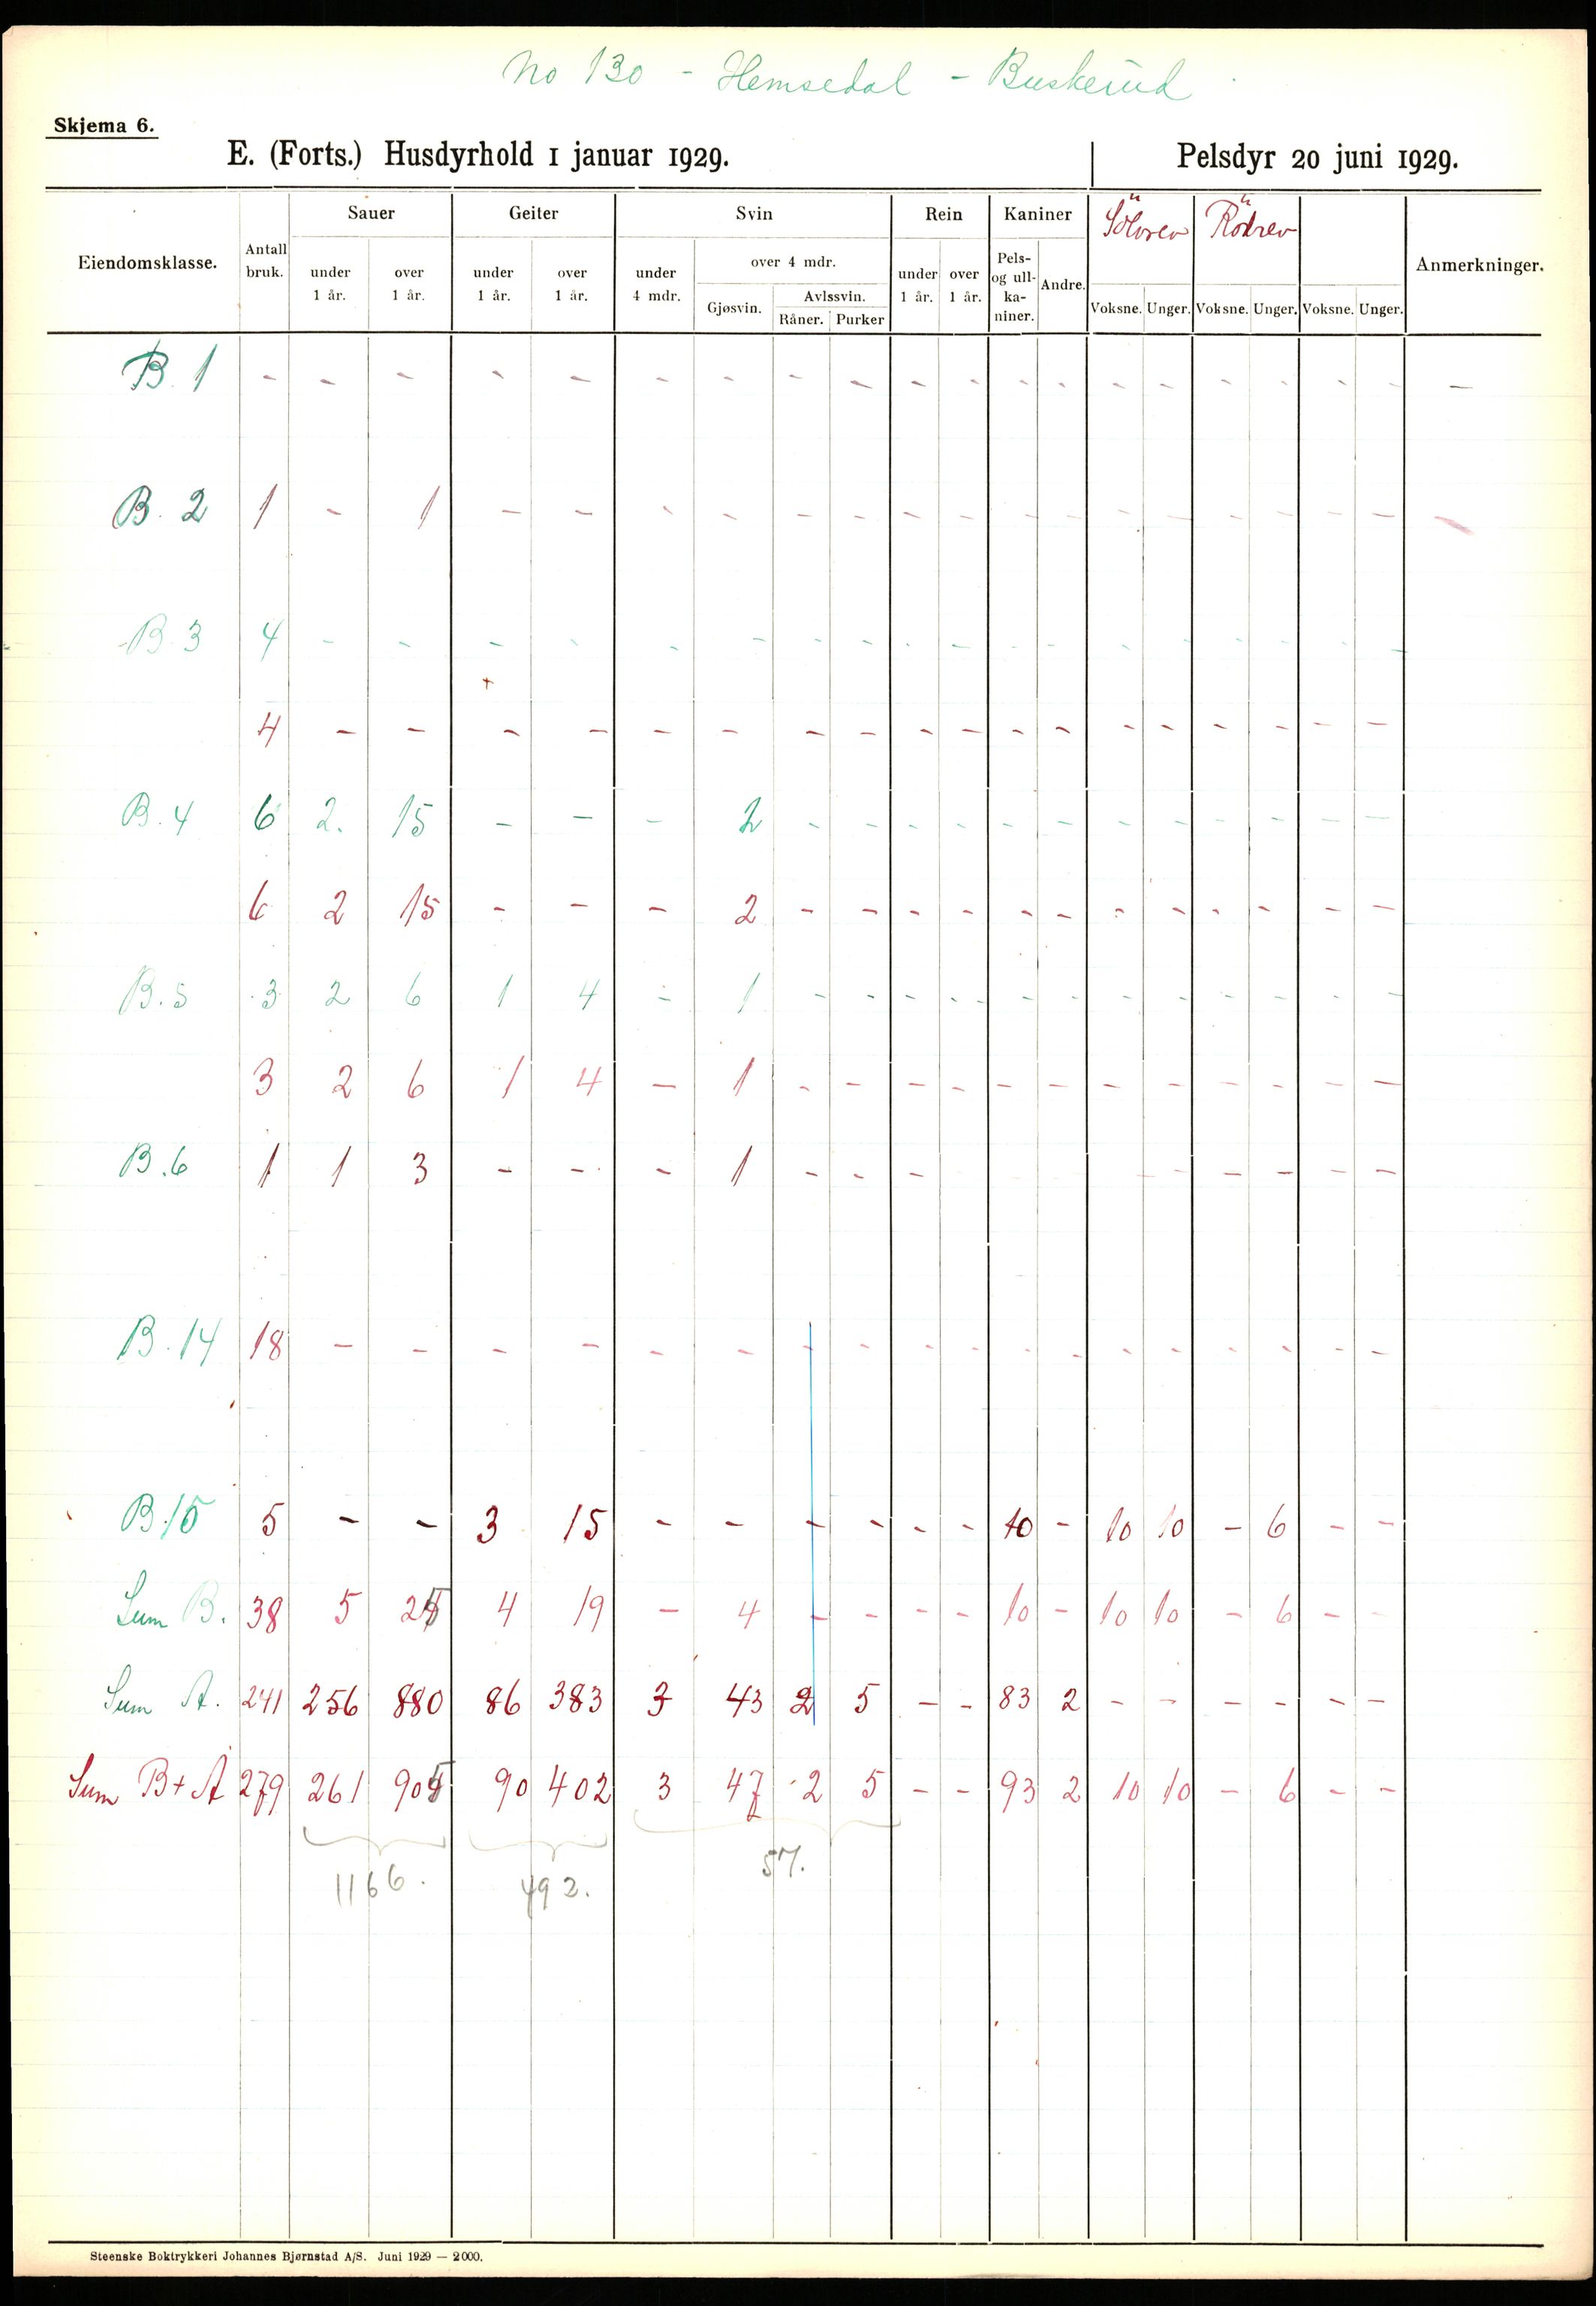 No 130 - Hemsedal - Buskerud
Skjema 6.
E. (Forts.) Husdyrhold 1 januar 1929. Pelsdyr 20 juni 1929.
Eiendomsklasse. Antall bruk. Sauer Geiter Svin Rein Kaniner Sölvrev Rödrev Anmerkninger.
under 1 år. over 1 år. under 1 år. over 1 år. under 4 mdr. over 4 mdr. under 1 år. over 1 år. Pels- og ull- ka- niner. Andre.
Gjøsvin. Avlssvin. Voksne. Unger. Voksne. Unger. Voksne. Unger.
Råner. Purker
B. 1 - - - - - - - - - - - - - - - - - - - -
B. 2 1 - 1 - - - - - - - - - - - - - - - - -
B. 3 4 - - - - - - - - - - - - - - - - - -
4 - - - - - - - - - - - - - - - - - -
B. 4 6 2. 15 - - - 2 - - - - - - - - - - - -
6 2 15 - - - 2 - - - - - - - - - - - -
B. 5 3 2 6 1 4 - 1 - - - - - - - - - - - -
3 2 6 1 4 - 1 - - - - - - - - - - - -
B. 6 1 1 3 - - - 1 - - - - - - - - -
B. 14 18 - - - - - - - - - - - - - - - - - -
B. 15 5 - - 3 15 - - - - - - 10 - 10 10 - 6 - -
Sum B. 38 5 25 4 19 - 4 - - - - 10 - 10 10 - 6 - -
Sum A. 241 256 880 86 383 3 43 2 5 - - 83 2 - - - - - -
Sum B + A 279 261 905 90 402 3 47 2 5 - - 93 2 10 10 - 6 - -
1166. 492. 57.
Steenske Boktrykkeri Johannes Bjørnstad A/S. Juni 1929 — 2000.